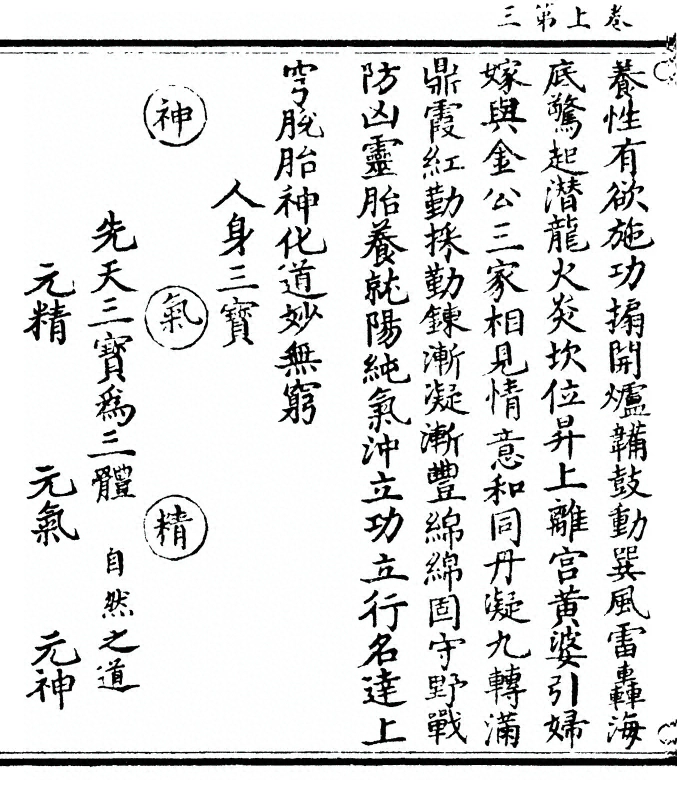 三第上卷
養性有欲施功搧開爐韛鼓動巽風雷轟海
底驚起潛龍火炎坎位昇上離宮黃婆引婦
嫁與金公三家相見情意和同丹凝九轉滿
鼎霞紅勤採勤鍊漸凝漸豐綿綿固守野戰
防凶靈胎養就陽純氣沖立功立行名達上
穹脫胎神化道妙無窮
人身三寶
神 氣 精
先天三寶為三體 自然之道
元精 元氣 元神